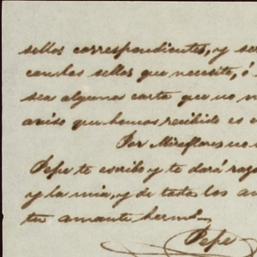 sellos correspondientes, y se
cambas sellos que necesite, ó
sea alguna carta que no
aviso que hemos recibido es
Por Miraflores no
Pepe te escribo y te dará raz
y la mia, y de toda los am
tu amante herm.
Pepe